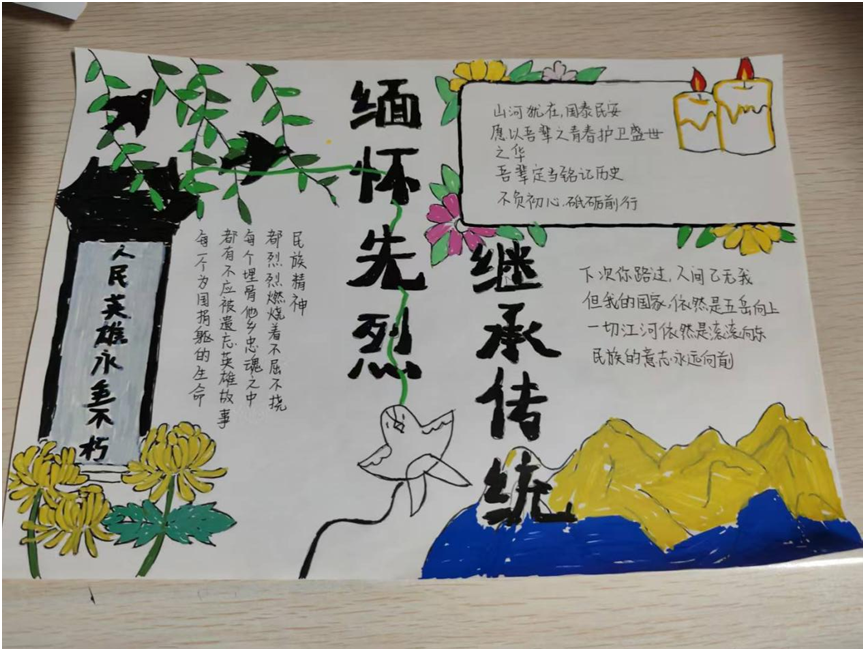 缅怀先烈
继承传统
人民英雄永垂不朽
每一个为国捐躯的生命
都有不应被遗忘英雄故事
每个埋骨他乡忠魂之中
都烈烈燃烧着不屈不挠
民族精神
山河犹在,国泰民安
愿以吾辈之青春护卫盛世
之华
吾辈定当铭记历史
不负初心.砥砺前行
下次你路过,人间已无我
但我的国家,依然是五岳向上
一切江河依然是滚滚向东
民族的意志永远向前